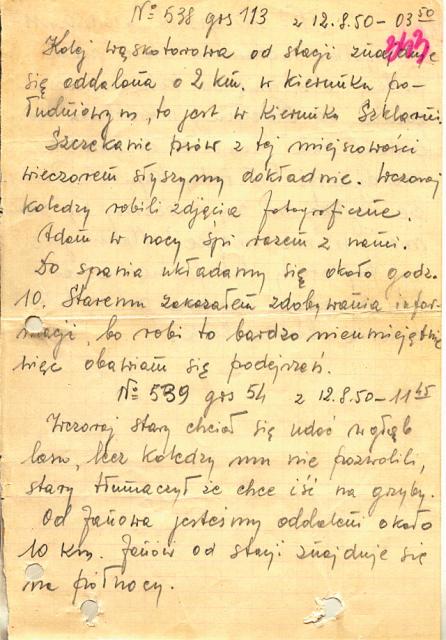 № 538 grs 113 z 12.8.50 – 03⁵⁰
Kolej wąskotorowa od stacji znajduje
się oddalona o 2 km. w kierunku po-
łudniowym, to jest w kierunku Szklarni.
Szczekanie psów z tej miejscowości
wieczorem słyszymy dokładnie. Wczoraj
koledzy robili zdjęcia fotograficzne.
Adam w nocy śpi razem z nami.
Do spania układamy się około godz.
10. Staremu zakazałem zdobywania infor-
macji, bo robi to bardzo nieumiejętnie
więc obawiam się podejrzeń.
№ 539 grs 54 z 12.8.50 – 11⁴⁵
Wczoraj stary chciał się udać wgłąb
lasu, lecz koledzy mu nie pozwolili,
stary tłumaczył że chce iść na grzyby.
Od Janowa jesteśmy oddaleni około
10 km. Janów od stacji znajduje się
na północy.